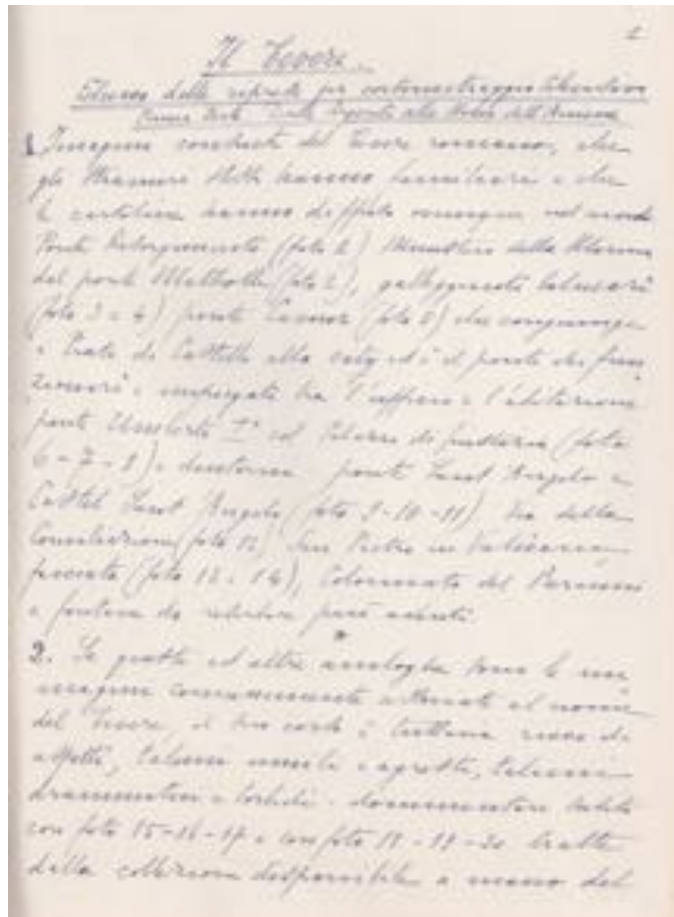 1
Il Tevere
Elenco delle riprese per cortometraggio
Prima Parte Dalle alla dell'Aniene
1. Immagini consuete del Tevere romano, che
gli hanno familiari e che
le cartoline hanno diffuso ovunque nel mondo
Ponte Risorgimento (foto 1) Ministero della Marina
dal ponte Matteotti (foto 2), galleggianti balneari
(foto 3 e 4) ponte Cavour (foto 5) che congiunge
i Prati di Castello alla città ed è il ponte dei fun
zionari e impiegati tra l'ufficio e l'abitazione
ponte Umberto I° col Palazzo di Giustizia (foto
6-7-8) e dintorni ponte Sant'Angelo e
Castel Sant'Angelo (foto 9-10-11) Via della
Conciliazione (foto 12) San Pietro in Vaticano
(foto 13 e 14), Colonnato del Bernini
e fontane da
2. Se queste ed altre analoghe sono le im
magini comunemente al nome
del Tevere, il suo corso è tuttavia ricco di
aspetti, talora umili e agresti, talora
drammatici e torbidi. documentare subito
con foto 15-16-17 e con foto 18-19-20 tratte
dalla collezione disponibile a meno del